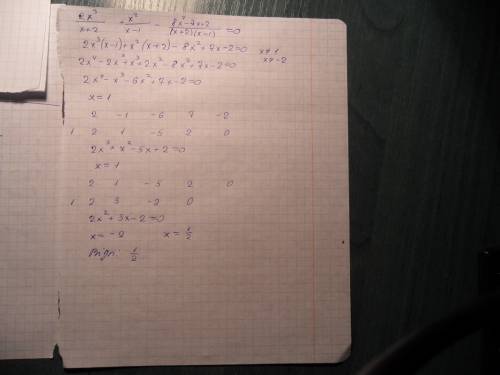 2x³/(x+2) + x²/(x-1) - (8x²-7x+2)/((x+2)(x-1)) = 0
2x³(x-1)+x²(x+2)-8x²+7x-2=0 x≠1
2x⁴-2x³+x³+2x²-8x²+7x-2=0 x≠-2
2x⁴-x³-6x²+7x-2=0
x=1
2 -1 -6 7 -2
1 2 1 -5 2 0
2x³+x²-5x+2=0
x=1
2 1 -5 2 0
1 2 3 -2 0
2x²+3x-2=0
x=-2 x=1/2
Відп: 1/2